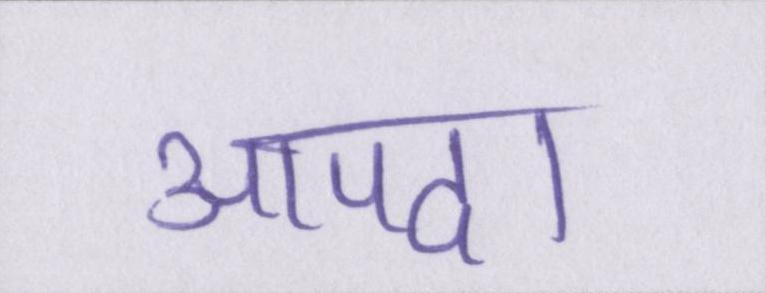 आपदा